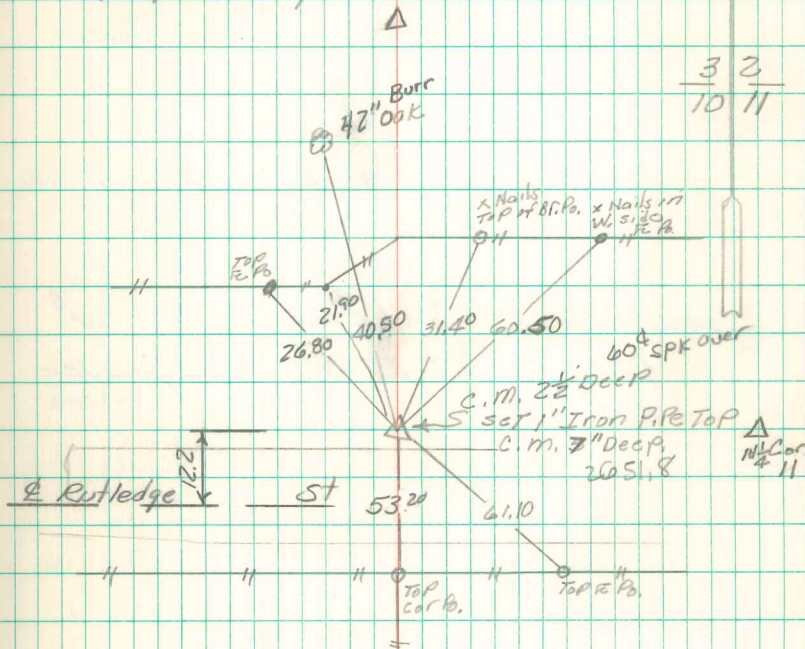 3 2
10 11
Burr
42" Oak
x Nails
Top of Br. Po.
x Nails in
W. side
Fc Po.
Top
Fc Po.
21.90
40.50
31.40
60.50
26.80
60d spk over
C.M. 2½' Deep
Set 1" Iron Pipe Top
C.M. 7" Deep.
2651.8
N¼ Cor.
11
12.2
℄ Rutledge St
53.20
61.10
Top
Cor Po.
Top Fc Po.